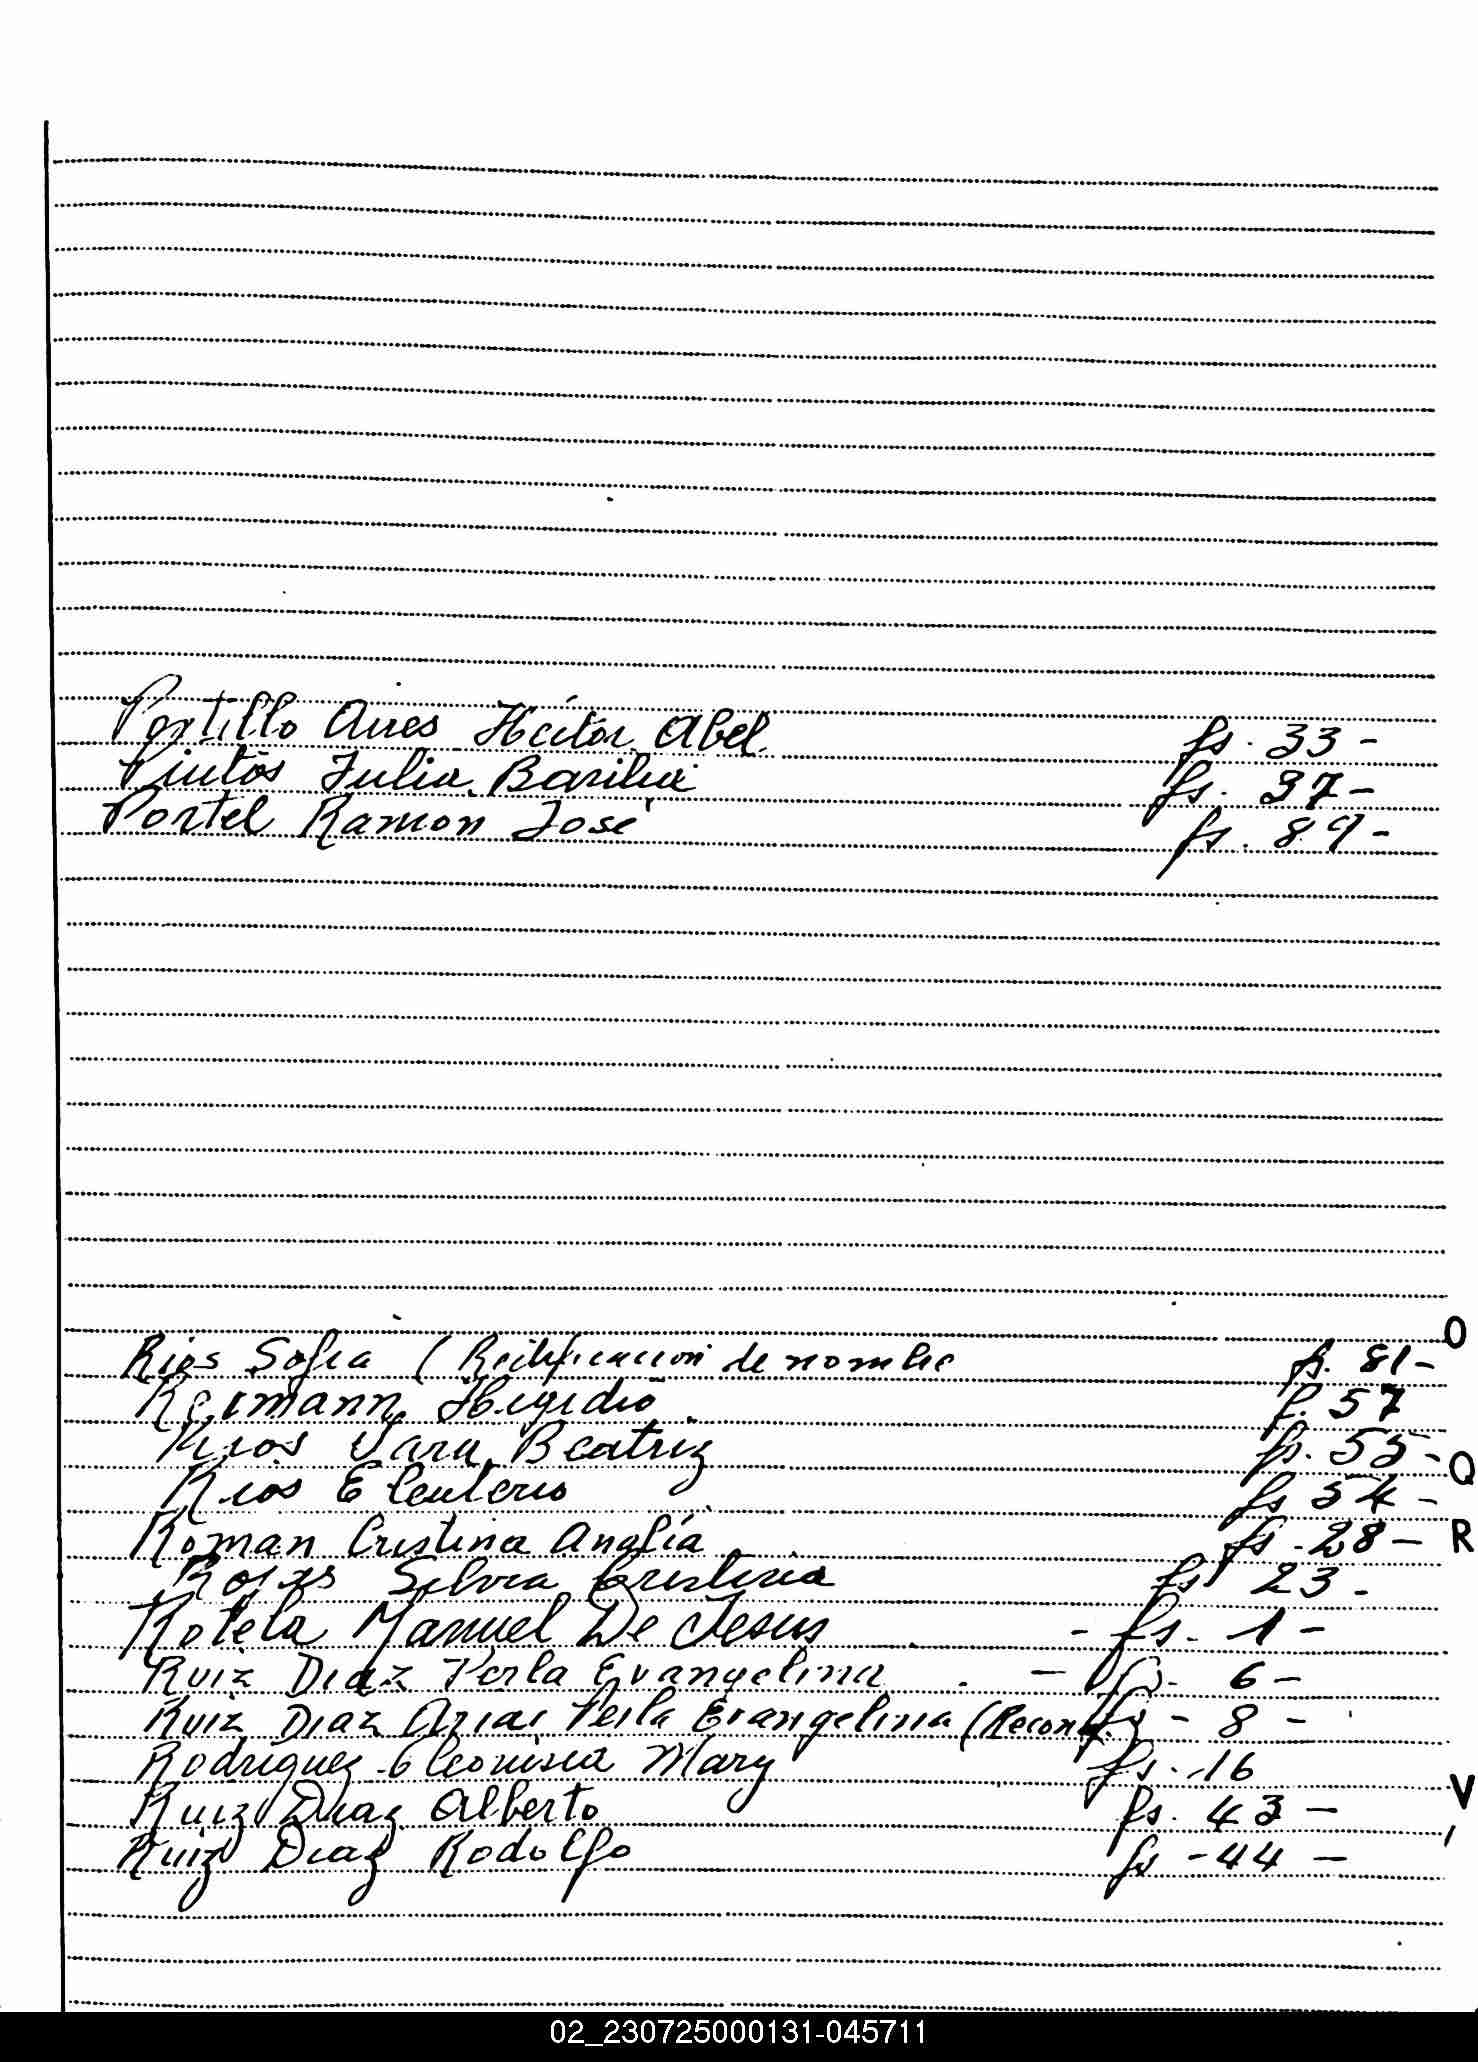 Portillo Aires Héctor Abel fs. 33-
Pintos Julia Basilia fs. 37-
Portel Ramon José fs. 89-
O
Rios Sofia (Rectificacion de nombre fs. 81-
Rermann Higidio f. 57
Rios Sara Beatriz fs. 55-
Q
Rios Eleuterio fs 54-
Roman Cristina Analía fs -28-
R
Rojas Silvia Cristina fs 23-
Rotela Manuel De Jesus - fs. 1-
Ruiz Diaz Perla Evangelina - fs. 6-
Ruiz Diaz Arias Perla Evangelina (Recon. fs - 8 -
Rodriguez Cleonisia Mary fs. -16
V
Ruiz Diaz Alberto fs. 43 -
Ruiz Diaz Rodolfo fs -44 -
02_230725000131-045711